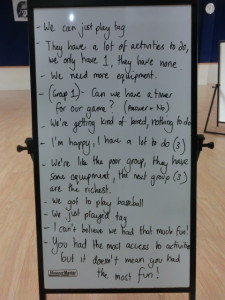 - We can just play tag
- They have a lot of activities to do,
we only have 1, they have none
- We need more equipment!
- (Group 1) Can we have a timer
for our game? (Answer = No)
- We're getting kind of bored nothing to do
- I'm happy, I have a lot to do (3)
- We're like the poor group, they have
some equipment, the next group (3)
are the richest
- We got to play baseball
- We just played tag
- I can't believe we had that much fun!
- You had the most access to activities
but it doesn't mean you had
the most fun!